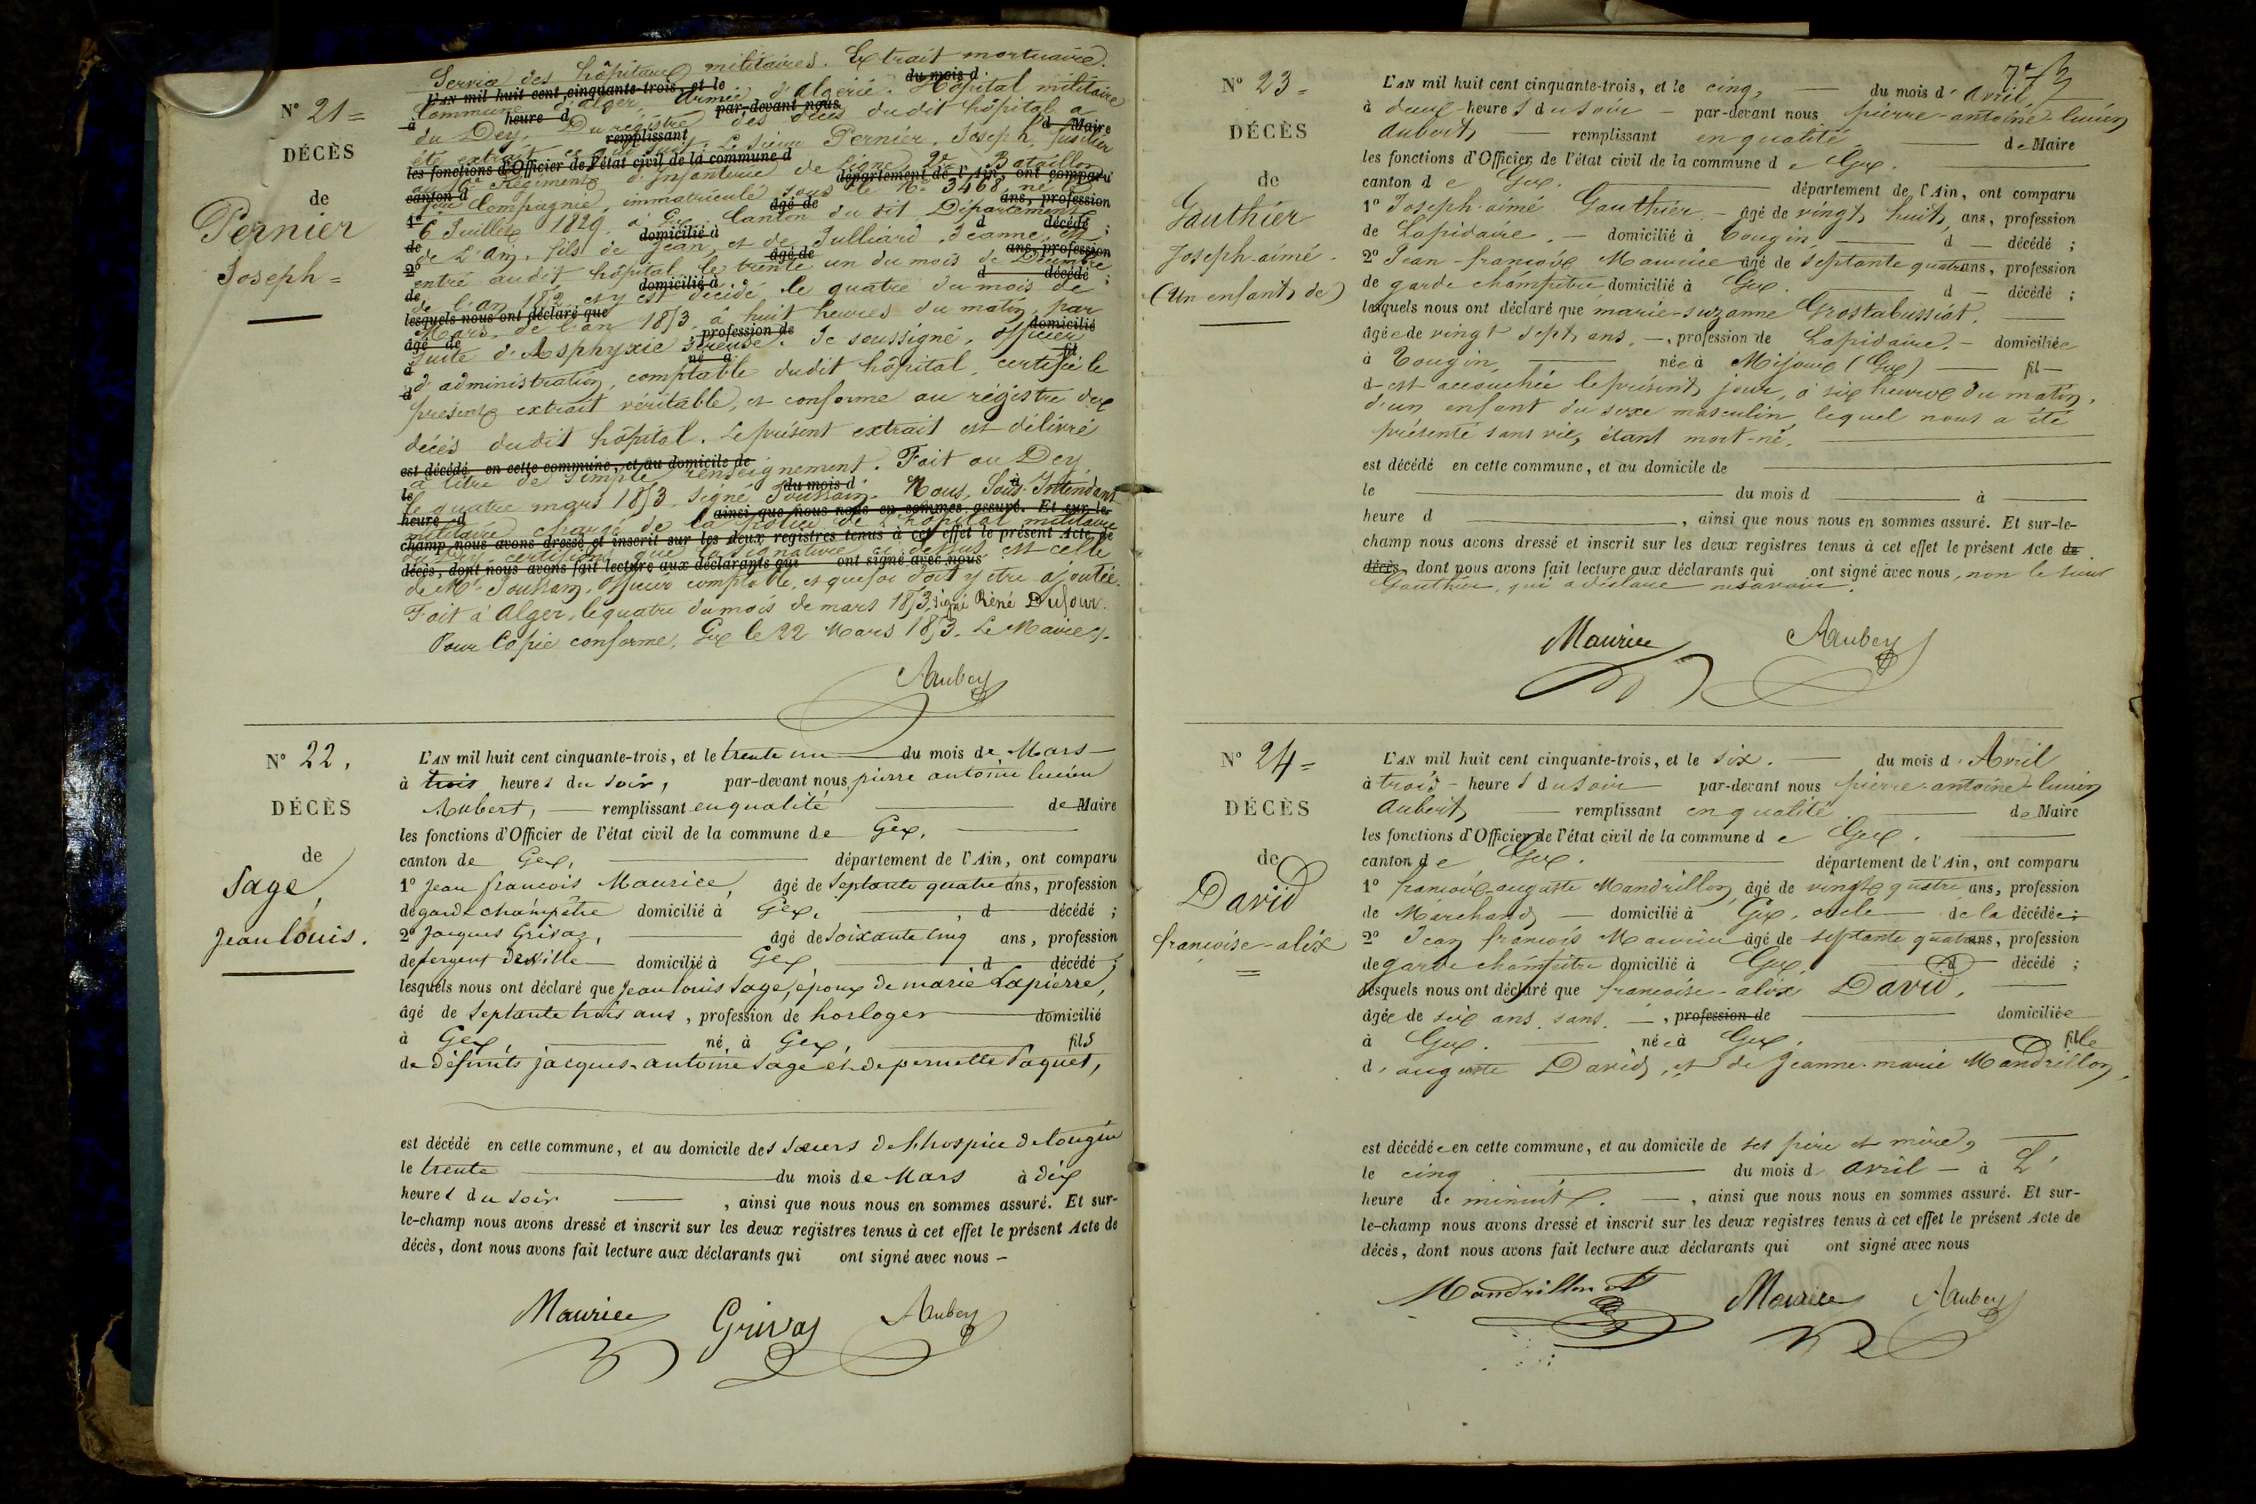 N° 21 =
DÉCÈS
de
Pernier
Joseph =
Service des hôpitaux militaires. Extrait mortuaire.
L'AN mil huit cent cinquante-trois, et le du mois d
Commune d'alger. Armée d'Algérie. Hôpital militaire
à heure d par-devant nous
du Dey. Du régistre des décès dudit hôpital a
remplissant d Maire
été extrait ce qui suit. Le Sieur Pernier, Joseph, fusilier
les fonctions d'Officier de l'état civil de la commune d
au Régiment d'Infanterie de ligne 2e Bataillon
canton d département de l'Ain, ont comparu
Compagnie, immatriculé sous le No 3468, né le
1° âgé de ans, profession
6 Juillet 1829 à Gex Canton du dit Département
de domicilié à d décédé ;
de L'Ain, fils de Jean et de Julliard Jeanne, est
2° âgé de ans, profession
entré audit hôpital le trente un du mois de
de domicilié à d décédé ;
de l'an 1852, et y est décédé le quatre du mois de
lesquels nous ont déclaré que
Mars de l'an 1853 à huit heures du matin, par
âgé de profession de domicilié
suite d'Asphyxie . Je soussigné, officier
à né à fil
d'administration, comptable dudit hôpital, certifie le
d
présent extrait véritable, et conforme au régistre des
décès dudit hôpital. Le présent extrait est délivré
est décédé en cette commune, et au domicile de
à titre de simple renseignement. Fait au Dey
le du mois d à
le quatre mars 1853. signé Toussain. Nous, Sous-Intendant
heure d ainsi que nous nous en sommes assuré. Et sur-le-
militaire chargé de la police de l'hôpital militaire
champ nous avons dressé et inscrit sur les deux registres tenus à cet effet le présent Acte de
certifions que la signature ci dessus est celle
décès, dont nous avons fait lecture aux déclarants qui ont signé avec nous
de Mr Toussain, officier comptable, et que foi doit y être ajoutée.
Fait à Alger, le quatre du mois de mars 1853, signé Réné Dufour.
Pour Copie conforme, Gex le 22 Mars 1853. Le Maire
Aubert
N° 22.
DÉCÈS
de
Sage,
Jean louis.
L'AN mil huit cent cinquante-trois, et le trente un du mois de Mars
à trois heures du soir, par-devant nous pierre antoine lucien
Aubert, remplissant en qualité de Maire
les fonctions d'Officier de l'état civil de la commune de Gex,
canton de Gex, département de l'Ain, ont comparu
1° Jean francois Maurice, âgé de septante quatre ans, profession
de garde champêtre domicilié à Gex, d décédé ;
2° Jacques Grivaz, âgé de soixante cinq ans, profession
de sergent de ville domicilié à Gex d décédé ;
lesquels nous ont déclaré que Jean louis Sage, époux de marie Lapierre,
âgé de septante trois ans, profession de horloger domicilié
à Gex, né à Gex, fils
de défunts jacques-antoine Sage et de pernette Paquet,
est décédé en cette commune, et au domicile des sœurs de l'hospice de tougin
le trente du mois de Mars à dix
heures du soir , ainsi que nous nous en sommes assuré. Et sur-
le-champ nous avons dressé et inscrit sur les deux registres tenus à cet effet le présent Acte de
décès, dont nous avons fait lecture aux déclarants qui ont signé avec nous –
Maurice Grivaz Aubert
N° 23 =
DÉCÈS
de
Gauthier
Joseph-aimé.
(Un enfant de)
L'AN mil huit cent cinquante-trois, et le cinq, du mois d'avril,
à deux heures du soir par-devant nous pierre-antoine-lucien
Aubert, remplissant en qualité de Maire
les fonctions d'Officier de l'état civil de la commune de Gex.
canton de Gex. département de l'Ain, ont comparu
1° Joseph-aimé Gauthier, âgé de vingt huit, ans, profession
de Lapidaire, domicilié à Tougin, d décédé ;
2° Jean-françois Maurice âgé de septante quatre ans, profession
de garde champêtre domicilié à Gex. d décédé ;
lesquels nous ont déclaré que marie-suzanne Grostabussiat,
âgée de vingt sept ans, profession de Lapidaire, domiciliée
à Tougin, née à Mijoux (Gex) fil
d est accouchée le présent jour, à six heures du matin,
d'un enfant du sexe masculin, lequel nous a été
présenté sans vie, étant mort-né.
est décédé en cette commune, et au domicile de
le du mois d à
heure d , ainsi que nous nous en sommes assuré. Et sur-le-
champ nous avons dressé et inscrit sur les deux registres tenus à cet effet le présent Acte de
décès, dont nous avons fait lecture aux déclarants qui ont signé avec nous, non le sieur
Gauthier, qui a déclaré ne savoir.
Maurice Aubert
N° 24 =
DÉCÈS
de
David
françoise-alix
L'AN mil huit cent cinquante-trois, et le six. du mois d'Avril
à trois heures du soir par-devant nous pierre-antoine-lucien
Aubert, remplissant en qualité de Maire
les fonctions d'Officier de l'état civil de la commune de Gex.
canton de Gex. département de l'Ain, ont comparu
1° françois-auguste Mandrillon, âgé de vingt quatre ans, profession
de Marchand domicilié à Gex, oncle de la décédée ;
2° Jean françois Maurice âgé de septante quatre ans, profession
de garde champêtre domicilié à Gex, d décédé ;
lesquels nous ont déclaré que françoise-alix David,
âgée de six ans, sans , profession de domiciliée
à Gex. née à Gex, fille
d'auguste David, et de Jeanne-marie Mandrillon,
est décédée en cette commune, et au domicile de ses père et mère,
le cinq du mois d'avril à L'
heure de minuit. , ainsi que nous nous en sommes assuré. Et sur-
le-champ nous avons dressé et inscrit sur les deux registres tenus à cet effet le présent Acte de
décès, dont nous avons fait lecture aux déclarants qui ont signé avec nous
Mandrillon Maurice Aubert